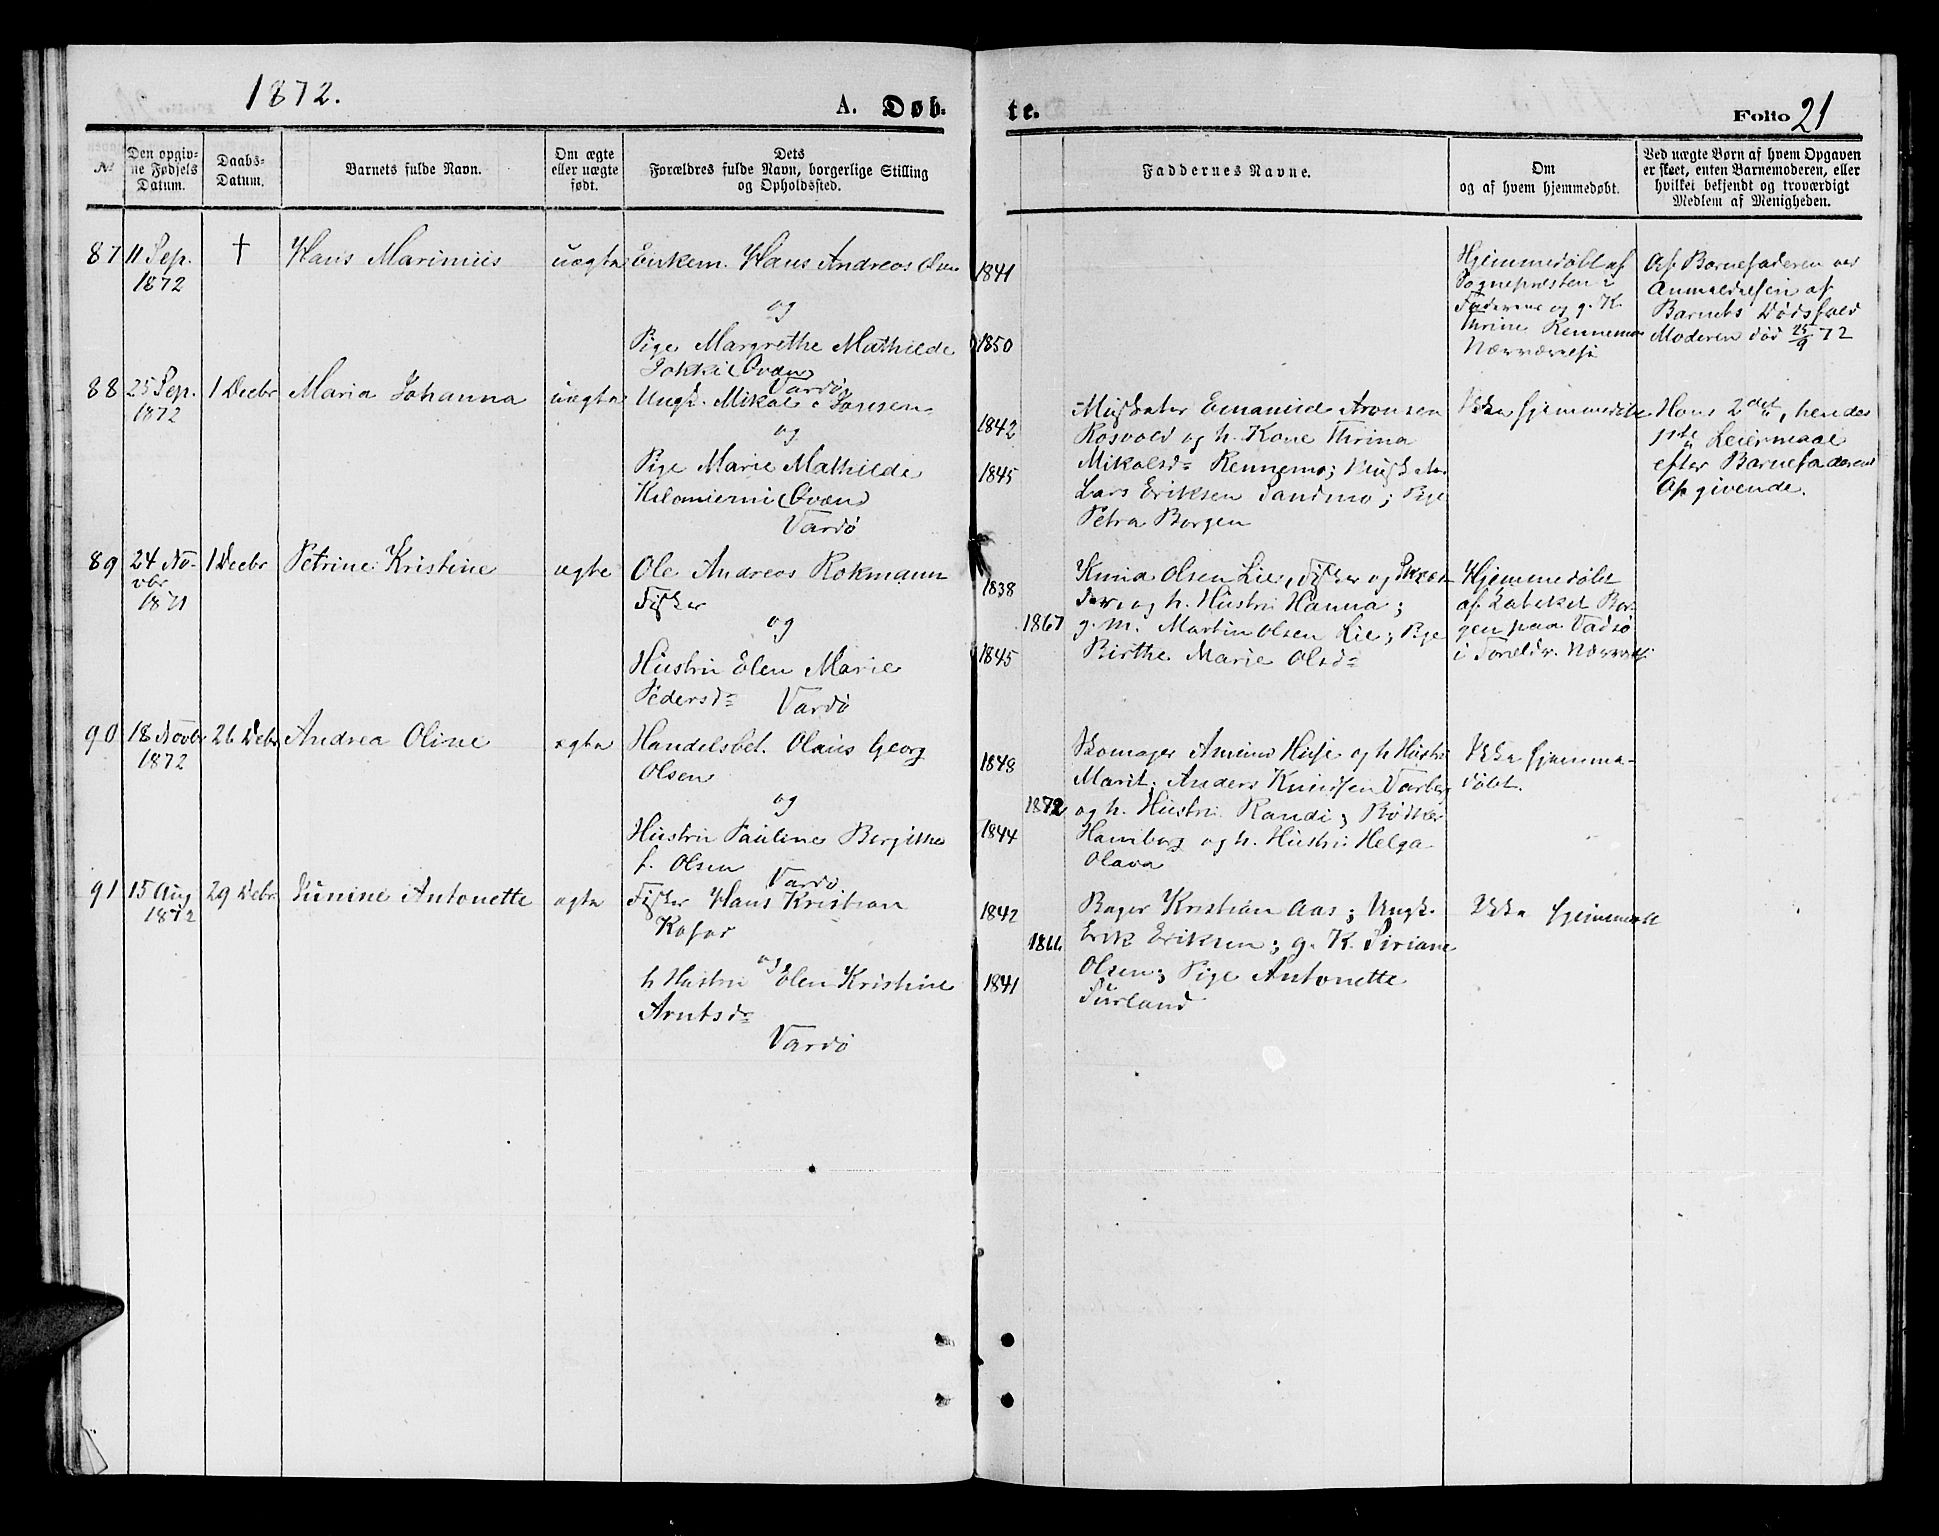 1872.
A. Døb-
te.
Folio 21
№
Den opgiv-
ne Fødsels
Datum.
Daabs-
Datum.
Barnets fulde Navn.
Om ægte
eller uægte
født.
Dets
Forældres fulde Navn, borgerlige Stilling
og Opholdssted.
Faddernes Navne.
Om
og af hvem hjemmedøbt.
Ved uægte Børn af hvem Opgaven
er skeet, enten Barnemoderen, eller
hvilket bekjendt og troværdigt
Medlem af Menigheden.
87
11 Sep.
1872
†
Hans Marinius
uægte
Enkem. Hans Andreas Olsen
og
Pige Margrethe Mathilde
(Qvæn)
Vardø
1841
1850
Hjemmedøbt af
Sognepræsten i
Faderens og g. K.
Thrine Rennemo
Nærværelse
Af Barnefaderen ved
Anmeldelsen af
Barnets Dødsfald
Moderen død 25/9 72
88
25 Sep.
1872
1 Decbr
Maria Johanna
uægte
Ungk. Mikal Jonsen
og
Pige Marie Mathilde
Kilomiemi (Qvæn)
Vardø
1842
1845
Musketer Emanuel Aronsen
Rosvold og h. Kone Thrina
Mikalsd. Rennemo; Musketer
Lars Eriksen Sandmo; Pige
Petra Borgen
Ikke hjemmedøbt
Hans 2det, hendes
1ste Leiermaal
efter Barnefaderens
Opgivende.
89
24 No-
vbr
1871
1 Decbr
Petrine Kristine
ægte
Ole Andreas Rokmann
Fisker
og
Hustru Elen Marie
Pedersd.
Vardø
1838
1867
1845
Knud Olsen Lie, Fisker og Skræd-
der, og h. Hustru Hanna;
g. M. Martin Olsen Lie; Pige
Birthe Marie Olsd.
Hjemmedøbt
af Bor-
gen paa Vadsø
i Foreldr. Nærværelse
90
18 Novbr
1872
26 Debr
Andrea Oline
ægte
Handelsbet. Olaus Georg
Olsen
og
Hustru Pauline Bergithe
f. Olsen
Vardø
1848
1872
1844
Skomager Amund Huse og h Hustru
Marit; Anders Knudsen Varberg
og h. Hustru Randi; Bødker
Hamborg og h. Hustru Helga
Olava
Ikke hjemme-
døbt.
91
15 Aug
1872
29 Debr
Junine Antonette
ægte
Fisker Hans Kristian
Kofar
og
h Hustru Elen Kristine
Arntsdr
Vardø
1842
1866
1841
Bager Kristian Aas; Ungk.
Erik Eriksen; g. K. Siriane
Olsen; Pige Antonette
Surland
Ikke hjemmedøbt